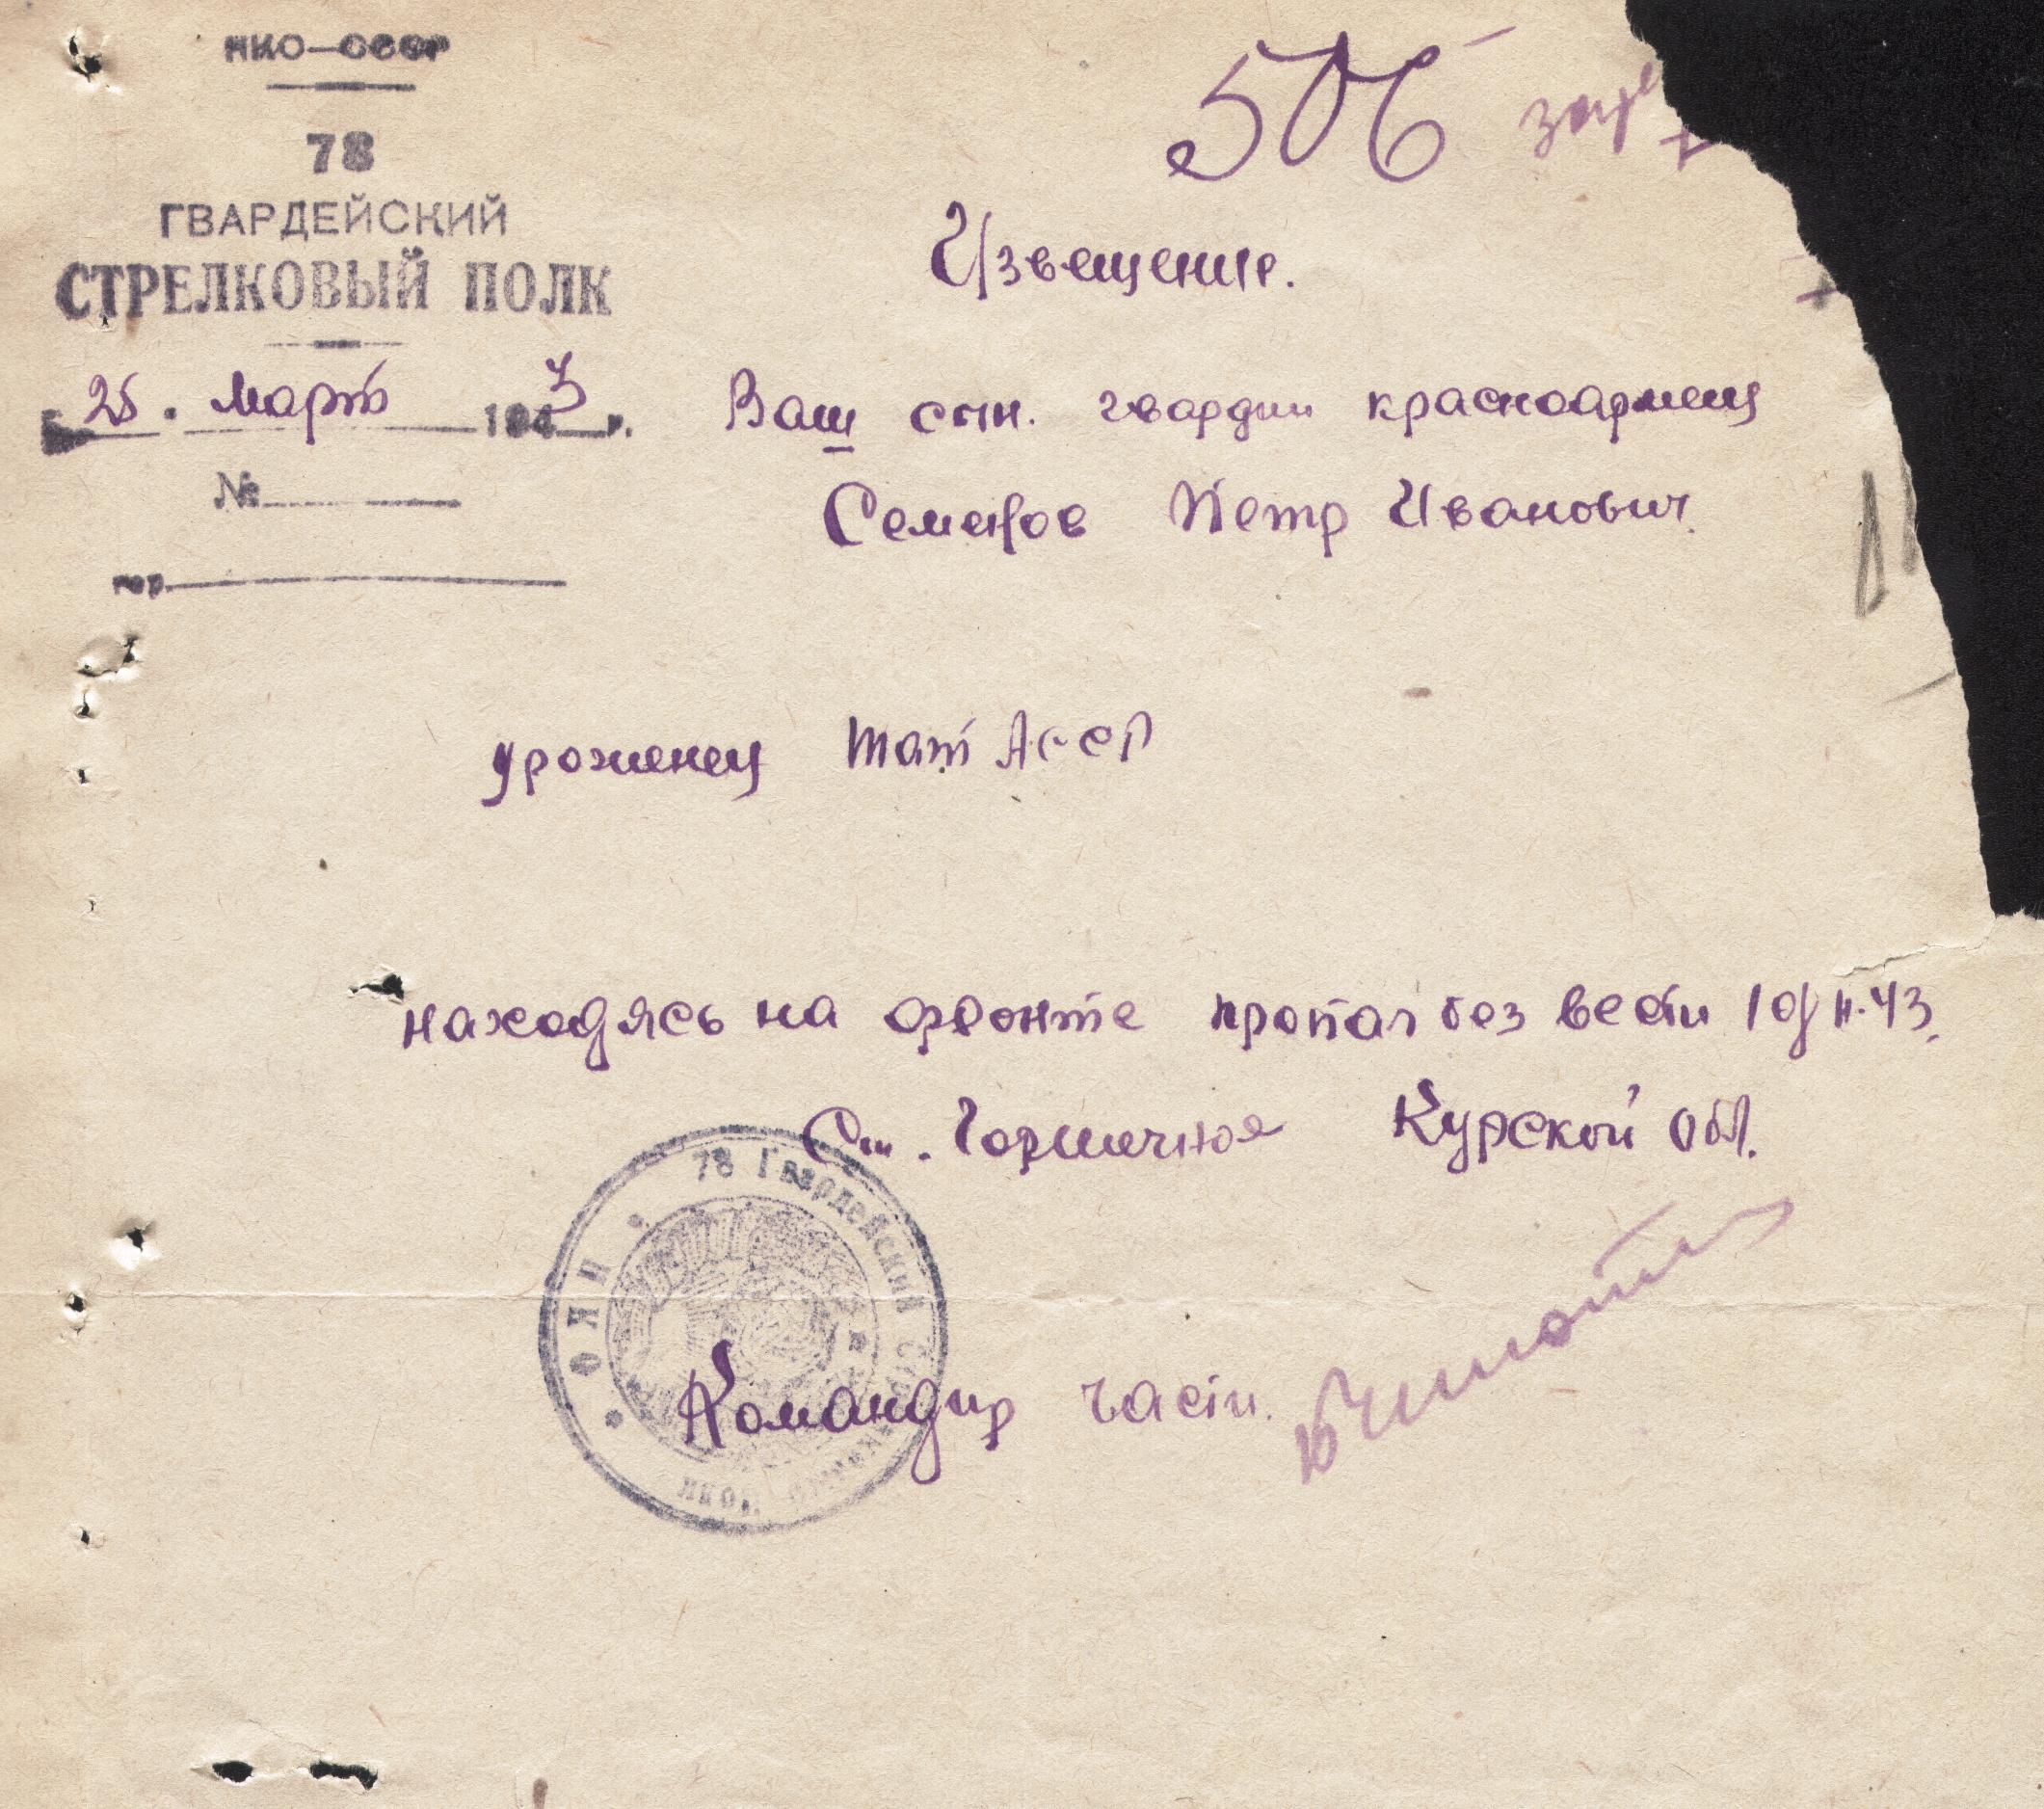 НКО–СССР
78
ГВАРДЕЙСКИЙ
СТРЕЛКОВЫЙ ПОЛК
25. Март 1943 г.
№
гор.
506
Извещение.
Ваш сын. гвардии красноармеец
Семенов Петр Иванович
уроженец Тат АССР
находясь на фронте пропал без вести 10/II.43.
Ст. Горшечное Курской обл.
78 Гвардейский
НКО
Командир части.